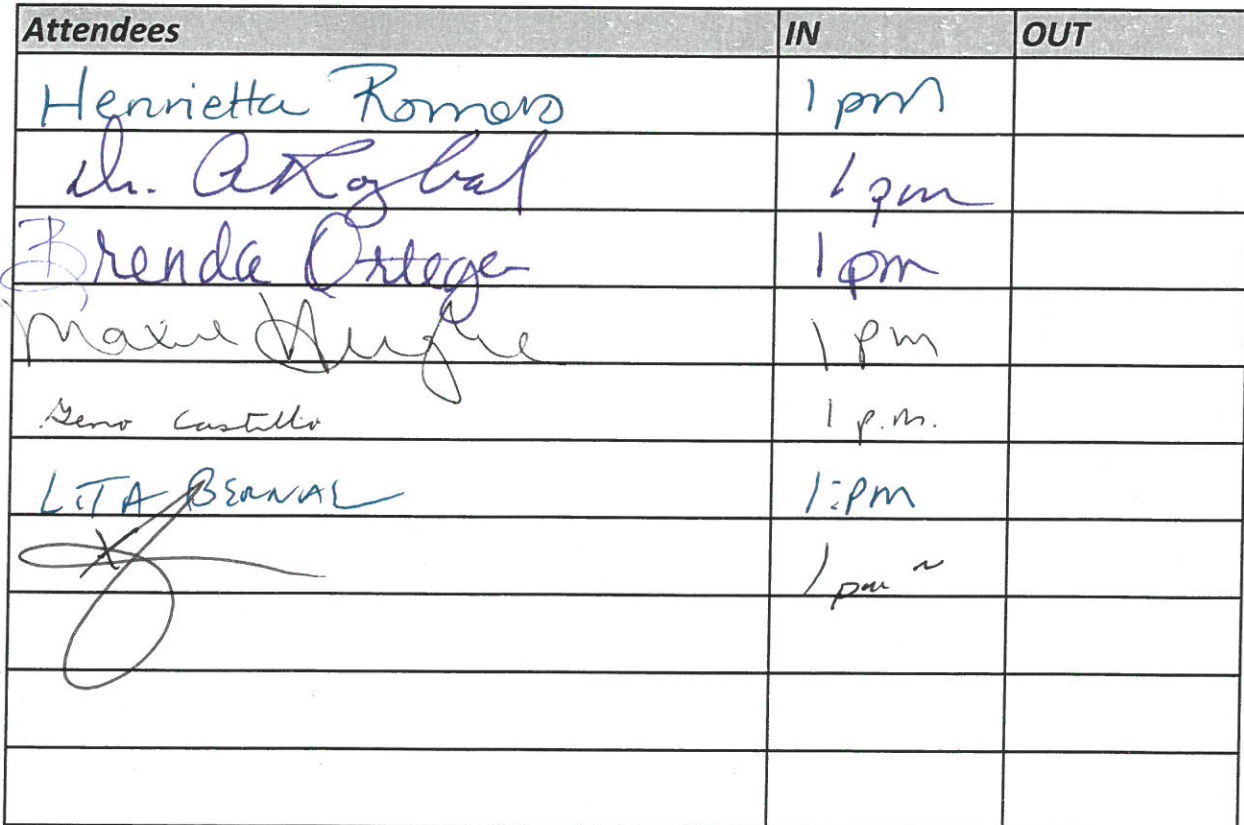 Attendees IN OUT
Henrietta Romero 1 pm
Dr. 1 pm
Brenda Ortega 1 pm
1 pm
Geno Castillo 1 p.m.
LITA BERNAL 1:pm
1 pm